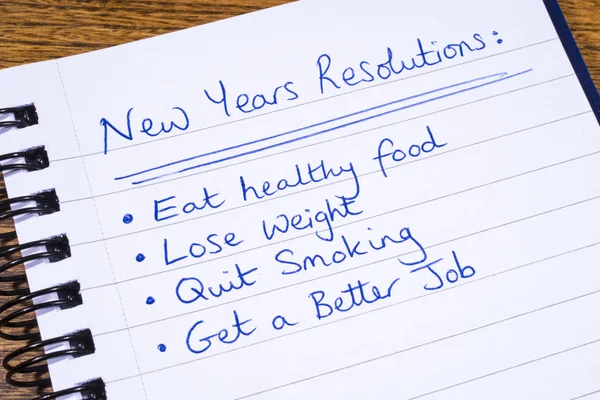 New Years Resolutions:
• Eat healthy food
• Lose Weight
• Quit Smoking
• Get a Better Job